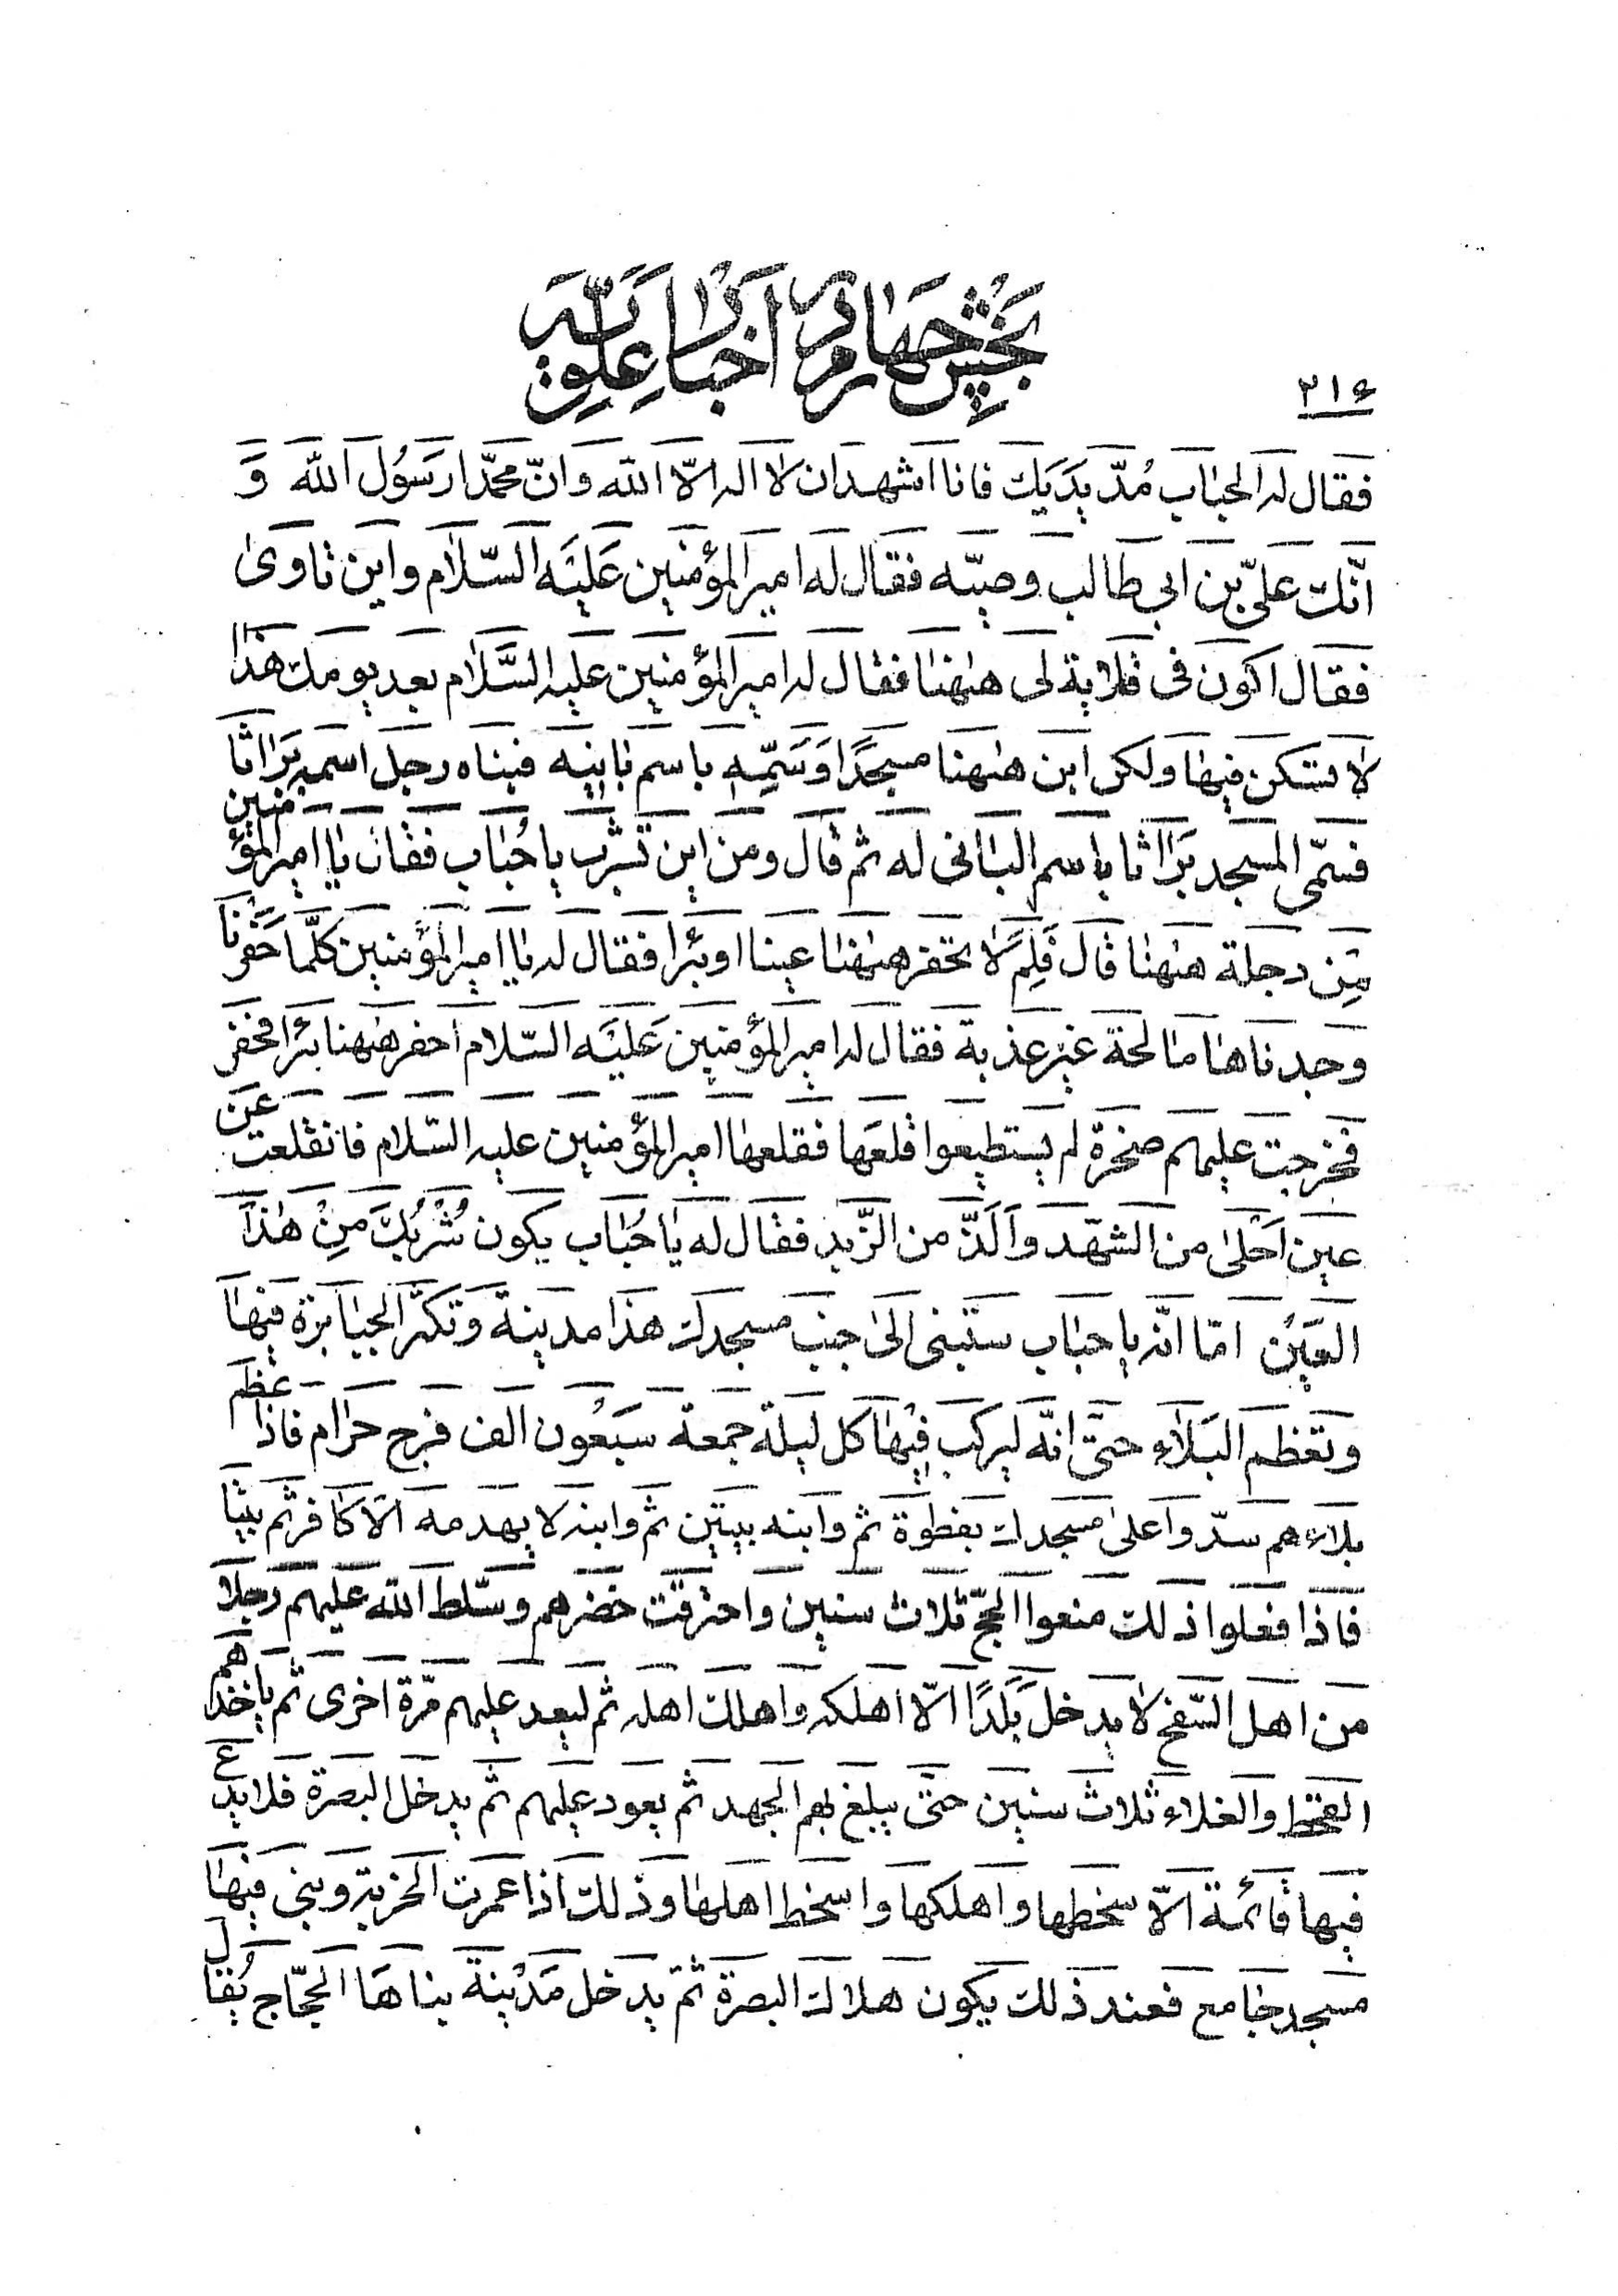 بخش چهارم در اخبار علویّه
۲۱۶
فقال له الحباب مُدّ يَدَيك فانا اشهد ان لا اله الّا اللّه وانّ محمّدا رَسُول اللّه وَ
انّك علىّ بن ابي طالب وصيّه فقال له امير المؤمنين عَليَه السّلام واين تاوى
فقال اكون فى قلاية لى هٰهنا فقال له امير المؤمنين عليه السَّلام بعد يومك هذا
لا تسكن فيها ولكن ابن هٰهنا مسجدًا وَسَمِّه باسم بانيه فبناه رجل اسمه بَراثا
فسمّى المسجد بَراثا باسم البانى له ثم قال ومن اين تشرب ياحُباب فقال يا امير المؤمنين
مِن دجلة هٰهنا قال فَلِمَ لا تحفر هٰهنا عينا او بئرا فقال له يا امير المؤمنين كلّما حَفَرنا
وجدناها مالحة غير عذبة فقال له امير المؤمنين عَليَه السّلام احفر هٰهنا بئرا فحفر
فخرجت عليهم صخرة لم يستطيعوا قلعَها فقلعها امير المؤمنين عليه السّلام فانقلعت عن
عين اَحْلىٰ من الشهد واَلَذّ من الزّبد فقال له يا حُباب يكون شُرْبُكَ مِنْ هٰذا
العَين امّا انّه يا حباب ستبنى الىٰ جنب مسجدك هذا مدينة وَتكثر الجبابرة فيها
وتعظم البَلاء حتّى انّه ليركب فيها كل ليلة جمعة سَبعُون الف فرج حرام فاذا عظم
بلاءهم سدّوا علىٰ مسجدك بفطوة ثم وابنه ببيتين ثم وابنه لا يهدمه الّا كافر ثم بيتا
فاذا فعلوا ذلك منعوا الحجّ ثلاث سنين واحترقت خضرهم وسّلط اللّه عليهم رَجلا
من اهل السّفح لا يدخل بَلَدًا الّا اهلكه واهلك اهله ثم ليعد عليهم مّرة اخرى ثم ياخذهم
القحط والغلاء ثلاث سنين حتّى يبلغ بهم الجهد ثم يعود عليهم ثم يدخل البصرة فلا يدع
فيها قائمة الّا سخطها واهلكها واسخط اهلها وذلك اذا عمرت الخربة وبنى فيها
مسجد جامع فعند ذلك يكون هلاك البصرة ثم يدخل مَدْينة بناها الحجّاج يُقال